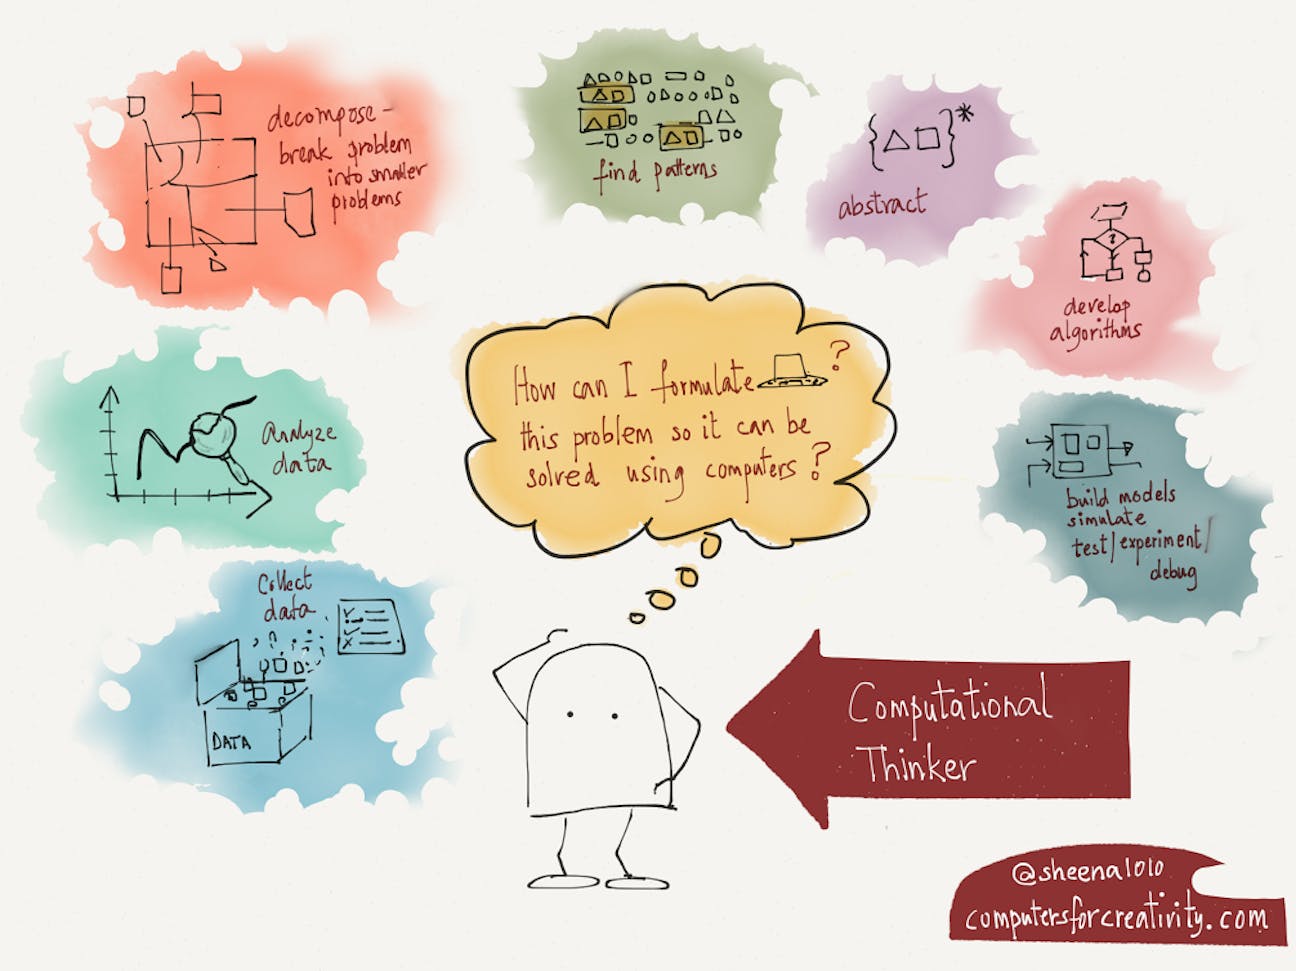 decompose -
break problem
into smaller
problems
find patterns
{△□}*
abstract
?
develop
algorithms
How can I formulate ?
this problem so it can be
solved using computers?
Analyze
data
build models
simulate
test/experiment/
debug
Collect
data
DATA
Computational
Thinker
@sheena1010
computersforcreativity.com